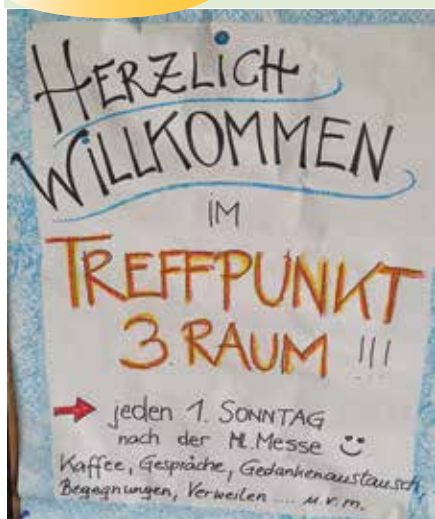 HERZLICH
WILLKOMMEN
IM
TREFFPUNKT
3 RAUM !!!
jeden 1. SONNTAG
nach der Hl. Messe
Kaffee, Gespräche, Gedankenaustausch,
Begegnungen, Verweilen .... u.v.m.